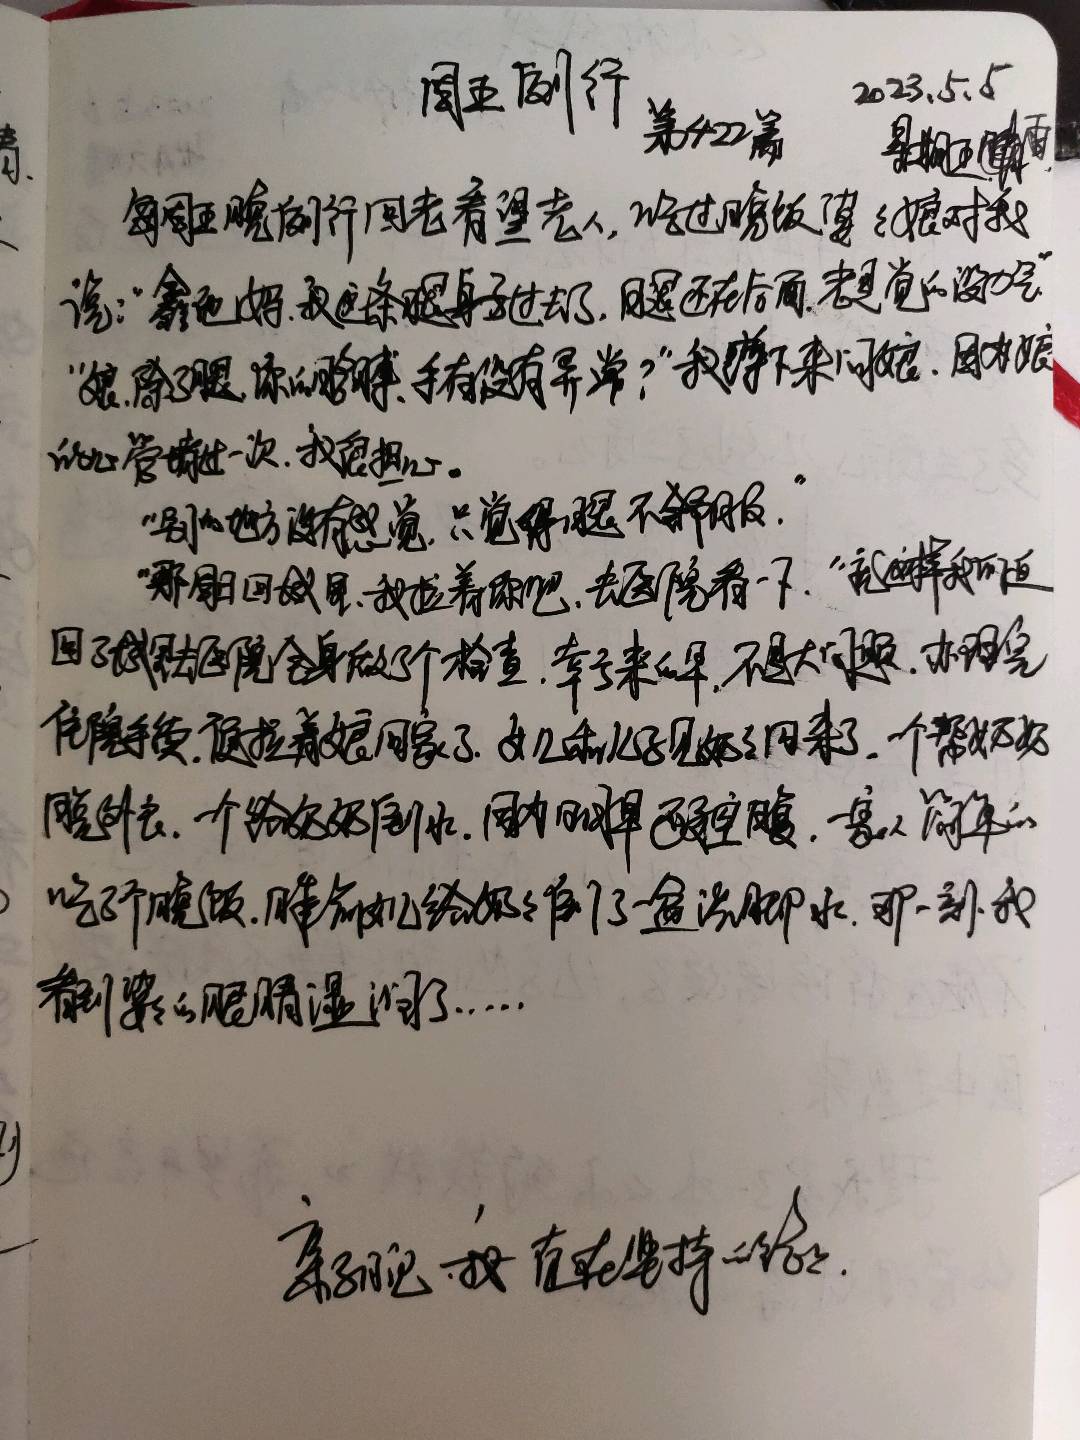 周五例行
2023.5.5
第422篇
星期五 晴雨
每周五晚例行回老看望老人,吃过晚饭 娘对我
说:"鑫他妈.我这条腿身子过去了,腿还在后面.老是觉的没力气"
"娘.除了腿.你的胳膊、手有没有异常?"我蹲下来问娘.因为娘
的心管堵过一次.我很担心。
"别的地方没有感觉.只觉得腿不舒服."
"那周日回城里.我拉着你吧.去医院看一下."就这样我们返
回了城里去医院全身做了个检查.幸亏来的早.不是大问题.办理完
住院手续.便拉着娘回家了.女儿和儿子见奶奶回来了.一个帮奶奶
脱外衣.一个给奶奶倒水.因为 早 空腹.一家人简单的
吃了个晚饭.睡前女儿给奶奶倒了一盆洗脚水.那一刻.我
看到婆婆的眼睛湿润了......
亲子日记 我一直在坚持的路上.